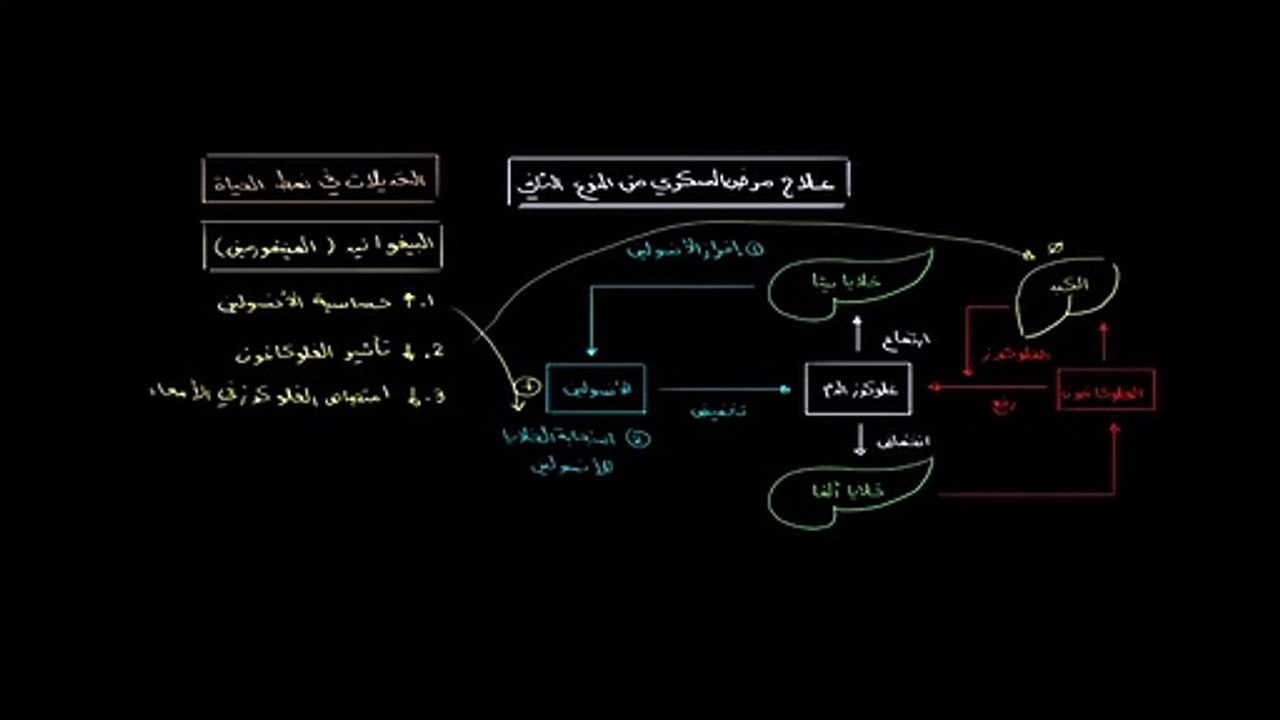 علاج مرض السكري من النوع الثاني
التعديلات في نمط الحياة
البيغوانيد (الميتفورمين)
1. ↑ حساسية الأنسولين
2. ↓ تأثير الغلوكاغون
3. ↓ امتصاص الغلوكوز في الأمعاء
① إفراز الأنسولين
خلايا بيتا
الكبد
ارتفاع
الغلوكوز
الأنسولين
تخفيض
غلوكوز الدم
رفع
الغلوكاغون
② استجابة الخلايا
للأنسولين
انخفاض
خلايا ألفا